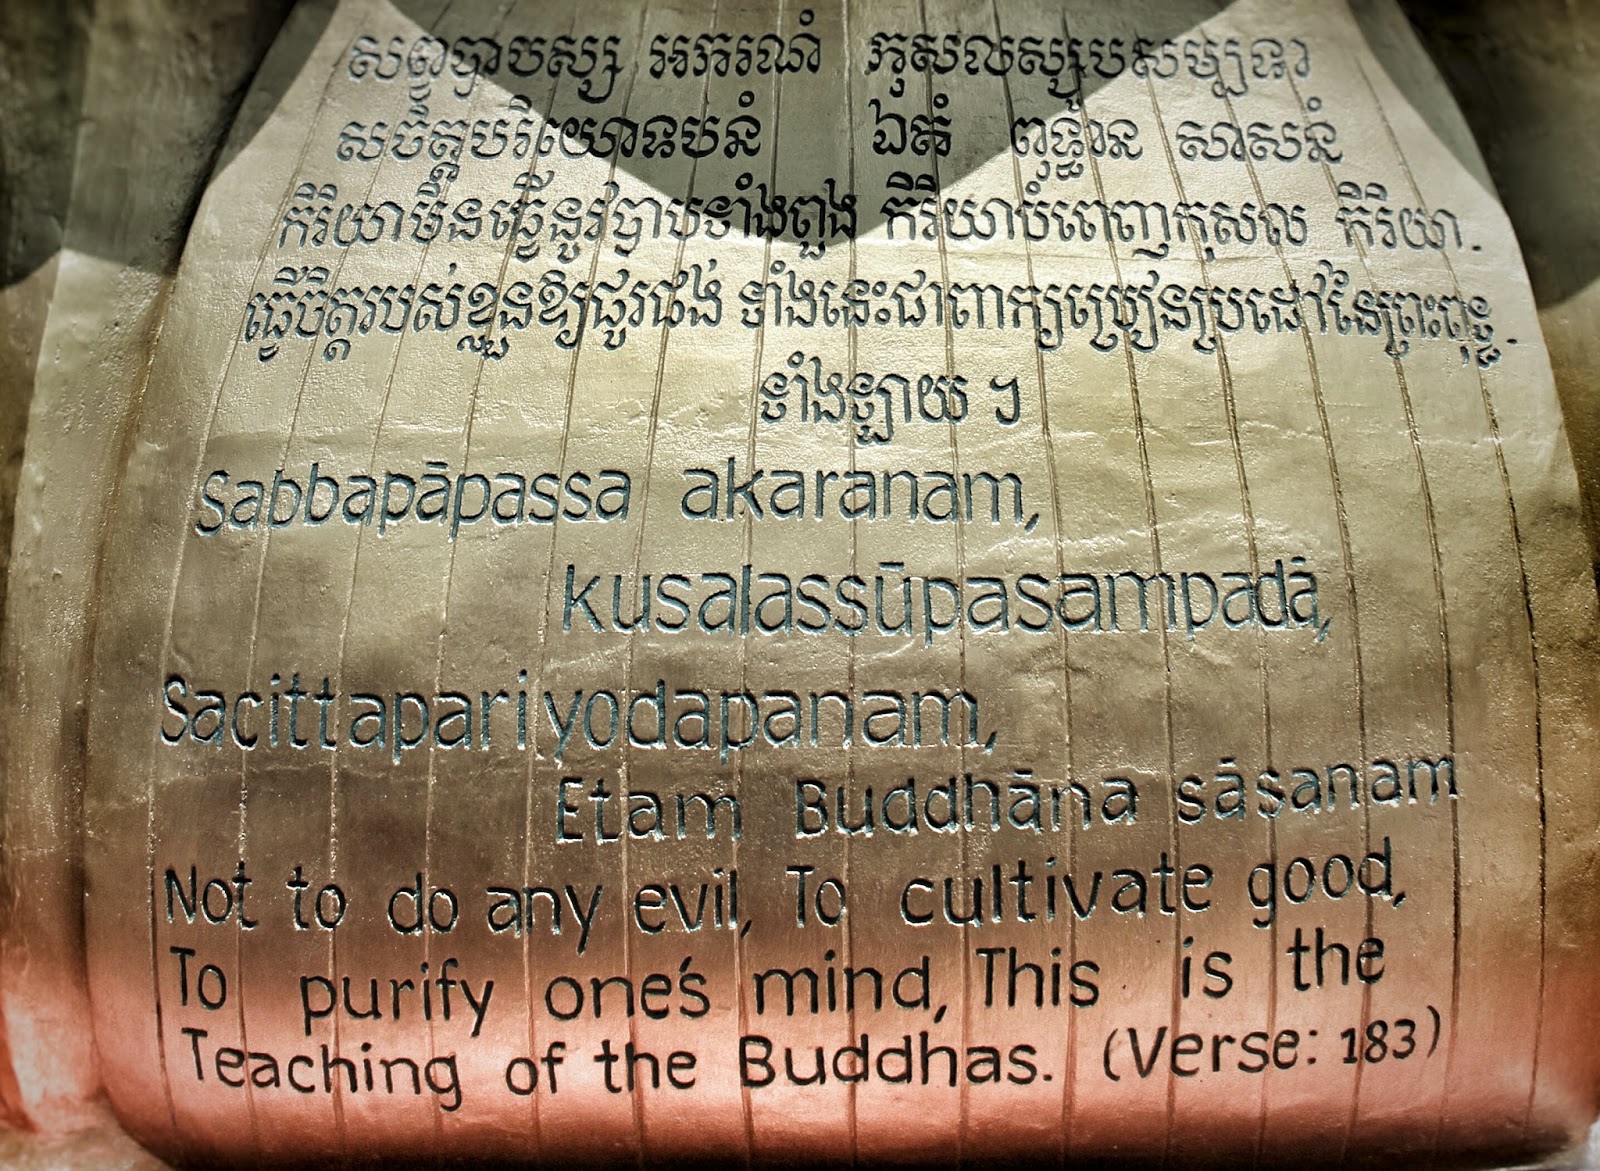 សព្វបាបស្ស អករណំ កុសលស្សូបសម្បទា
សចិត្តបរិយោទបនំ ឯតំ ពុទ្ធាន សាសនំ
កិរិយាមិនធ្វើនូវបាបទាំងពួង កិរិយាបំពេញកុសល កិរិយា.
ធ្វើចិត្តរបស់ខ្លួនឱ្យផូរផង់ ទាំងនេះជាពាក្យប្រៀនប្រដៅនៃព្រះពុទ្ធ.
ទាំងឡាយ ។
Sabbapāpassa akaranam,
kusalassūpasampadā,
Sacittapariyodapanam,
Etam Buddhāna sāsanam
Not to do any evil, To cultivate good,
To purify one's mind, This is the
Teaching of the Buddhas. (Verse: 183)